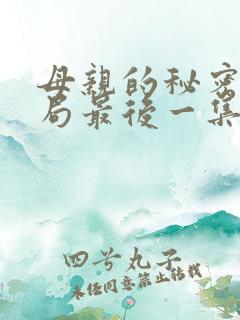 母親的秘密
局最後一集
四号丸子
未经同意禁止转载